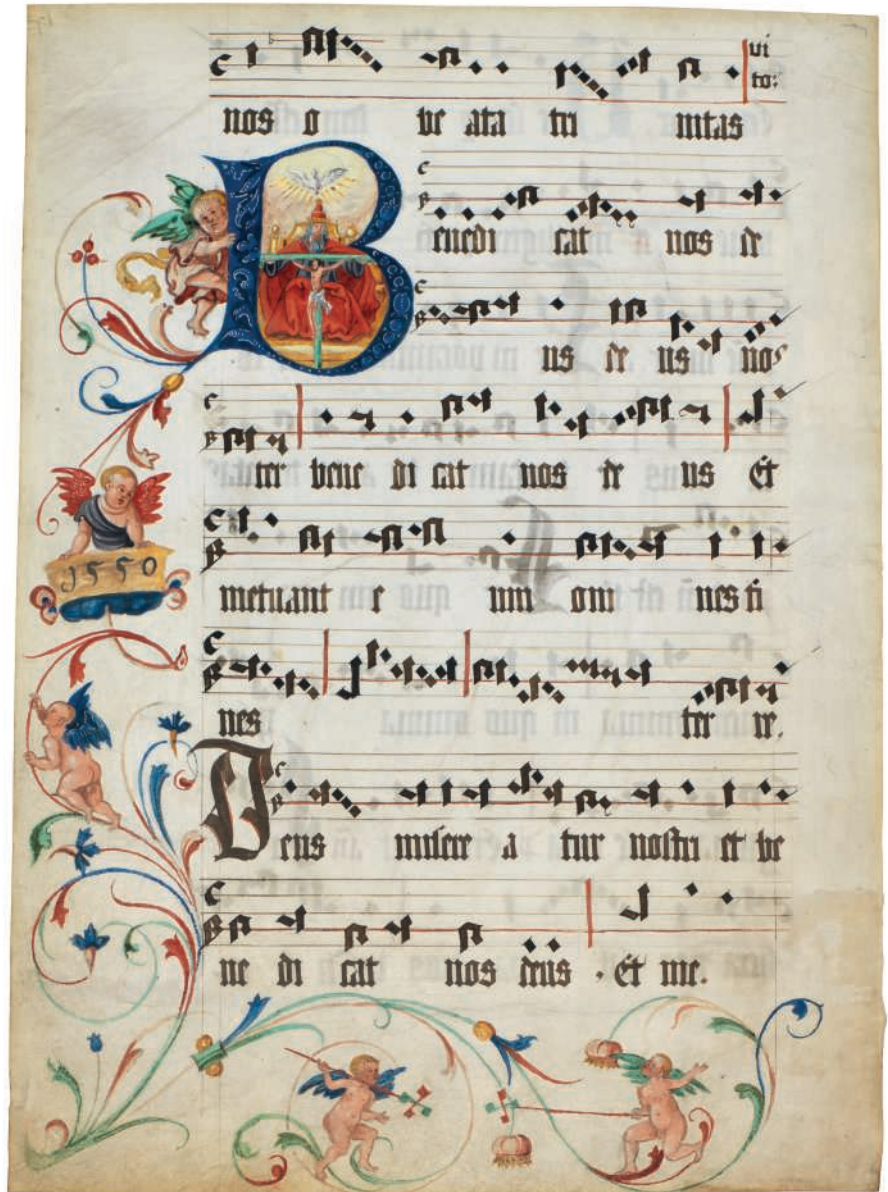 nos o be ata tri nitas
vi
to:
Benedi cat nos de
us de us nos
ter bene di cat nos de us Et
metuant e um om nes fi
1550
nes ter re.
Deus misere a tur nostri et be
ne di cat nos deus . Et me.